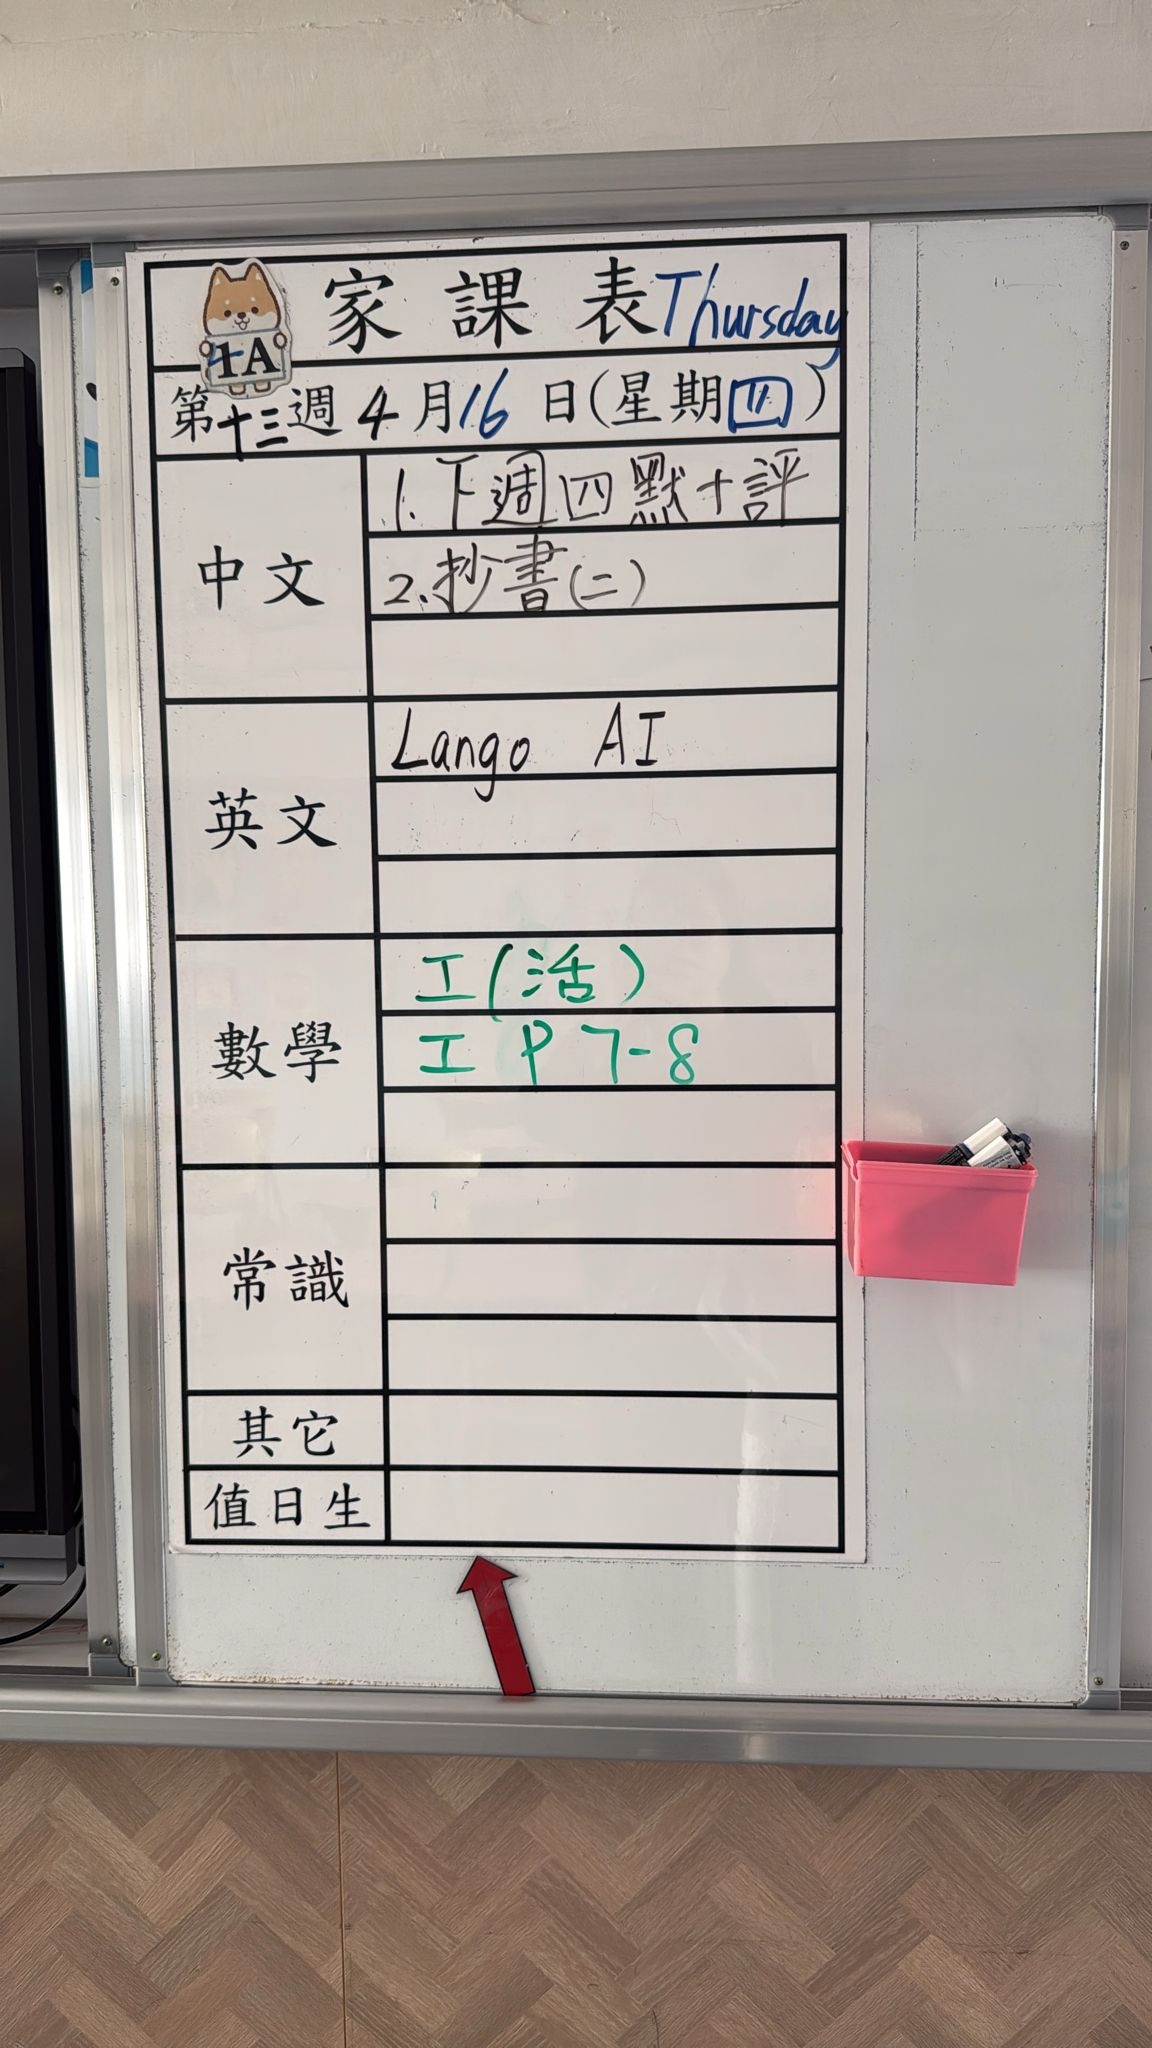 家課表 Thursday
1A
第十三週 4月16日(星期四)
中文
1. 下週四默+評
2. 抄書(二)
英文
Lango AI
數學
工(活)
工 P 7-8
常識
其它
值日生